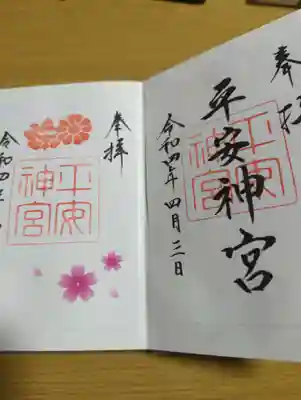 奉拝
平安神宮
平安神宮
令和四年四月三日
奉拝
平安神宮
令和四年